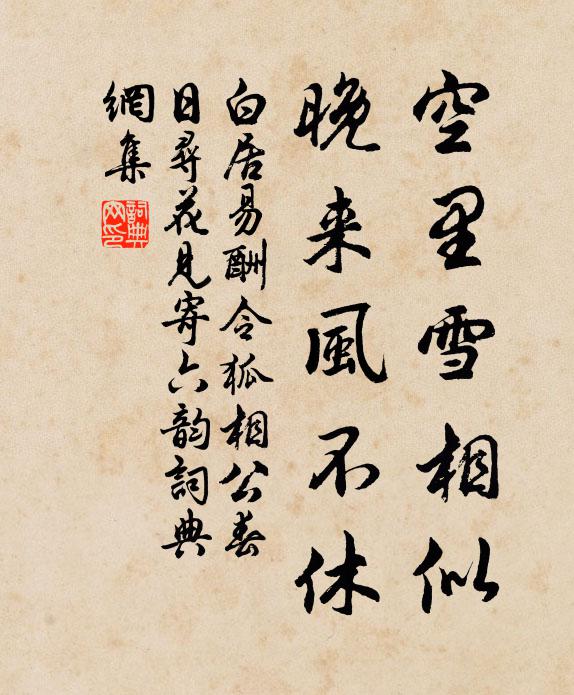 空里雪相似
晚来風不休
白居易酬令狐相公春
日尋花見寄六韵詞典
網集
詞典
网印